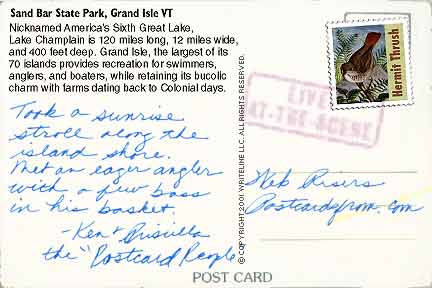 Sand Bar State Park, Grand Isle VT
Nicknamed America's Sixth Great Lake,
Lake Champlain is 120 miles long, 12 miles wide,
and 400 feet deep. Grand Isle, the largest of its
70 islands provides recreation for swimmers,
anglers, and boaters, while retaining its bucolic
charm with farms dating back to Colonial days.
Took a sunrise
stroll along the
island shore.
Met an eager angler
with a few bass
in his basket.
-Ken & Priscilla
the "Postcard People
© COPYRIGHT 2001 WRITELINE LLC. ALL RIGHTS RESERVED.
LIVE
AT-THE SCENE
Hermit Thrush
Web Risers
Postcardsfrom.com
POST CARD